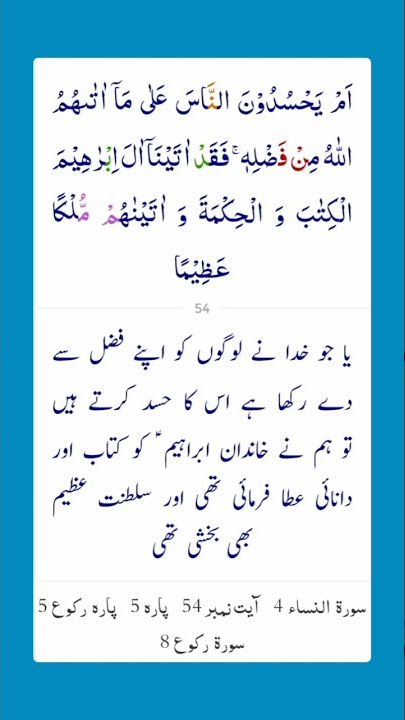 اَمْ يَحْسُدُوْنَ النَّاسَ عَلٰى مَاۤ اٰتٰىهُمُ
اللّٰهُ مِنْ فَضْلِهٖ ۚ فَقَدْ اٰتَيْنَاۤ اٰلَ اِبْرٰهِيْمَ
الْكِتٰبَ وَ الْحِكْمَةَ وَ اٰتَيْنٰهُمْ مُّلْكًا
عَظِيْمًا
54
یا جو خدا نے لوگوں کو اپنے فضل سے
دے رکھا ہے اس کا حسد کرتے ہیں
تو ہم نے خاندان ابراہیم ؑ کو کتاب اور
دانائی عطا فرمائی تھی اور سلطنت عظیم
بھی بخشی تھی
سورۃ النساء 4 آیت نمبر 54 پارہ 5 پارہ رکوع 5
سورۃ رکوع 8